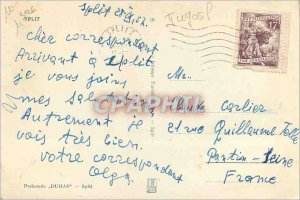 Split
SPLIT
Yugosl
17
Chère correspondant
Arrivant à Split
je vous joins
mes salutations
Autrement je
vais très bien.
votre correspondant
Olga.
Mr.
Claude Carlier
21 rue Guillaume Tell
Pantin - Seine
France
Poduzeće „DUHAN" – Split
CPARAMA.com